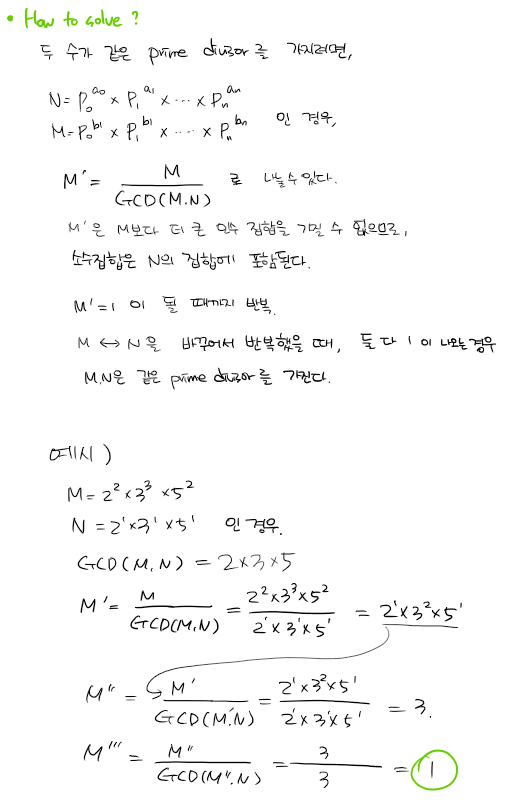 • How to solve ?
두 수가 같은 prime divisor를 가지려면,
N = P₀^a₀ × P₁^a₁ × ⋯ × Pₙ^aₙ
M = P₀^b₁ × P₁^b₁ × ⋯ × Pₙ^bₙ 인 경우,
M' = M / GCD(M.N) 로 나눌 수 있다.
M'은 M보다 더 큰 인수 집합을 가질 수 없으므로,
소수집합은 N의 집합에 포함된다.
M' = 1 이 될 때까지 반복.
M ↔ N을 바꾸어서 반복했을 때, 둘 다 1 이 나오는 경우
M.N은 같은 prime divisor를 가진다.
예시)
M = 2² × 3³ × 5²
N = 2¹ × 3¹ × 5¹ 인 경우.
GCD(M, N) = 2×3×5
M' = M / GCD(M,N) = 2² × 3³ × 5² / 2¹ × 3¹ × 5¹ = 2¹ × 3² × 5¹
M'' = M' / GCD(M'.N) = 2¹ × 3² × 5¹ / 2¹ × 3¹ × 5¹ = 3.
M''' = M'' / GCD(M''.N) = 3 / 3 = 1